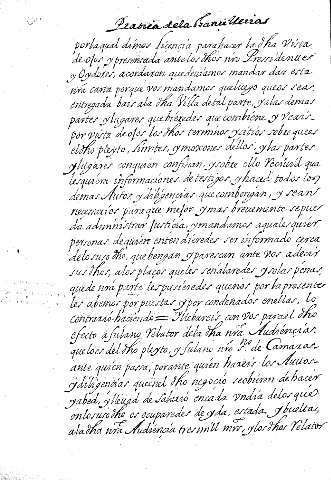 Pratica de la Chancilleria
por la qual dimos licencia para hazer la dha vista
de ojos y presentada ante los dhos nros Pressidentes
y Oydores, acordaron que deviamos mandar dar esta
nra carta por que vos mandamos que luego que os sea
entregada bais a la dha Villa de tal parte, y a las demas
partes y lugares que bieredes que combiene y veais
por vista de ojos los dhos terminos y sitios sobre que es
el dho pleyto, limites, y moxones dellos, y las partes
y lugares con quien confinan, y sobre ello Reciuid
les quier informaciones de testigos, y haced todos los
demas Autos y diligencias que combengan, y sean
necesarios para que mejor y mas brevemente se pue
da administrar Justicia, y mandamos a quales quier
personas de quien entendieredes ser informado cerca
de lo suso dho, que bengan y parescan ante vos a dezir
sus dhos, a los plaços que les señalaredes y so las penas
que de nra parte les pusieredes que nos por la presente
les abemos por puestas y por condenados en ellas, lo
contrario haciendo = Y llevareis con vos para el dho
efecto a fulano Relator de la dha nra Audiencia
que lo es del dho pleyto, y fulano nro de Camara
ante quien pasa, por ante quien hareis los Autos
y diligencias que en el dho negocio se obieren de hacer
y abed, y lleuad de Salario en cada vn dia de los que
en lo suso dho os ocuparedes de yda, estada, y buelta
a la dha nra Audiencia tres mill mrs, y los dhos Relator